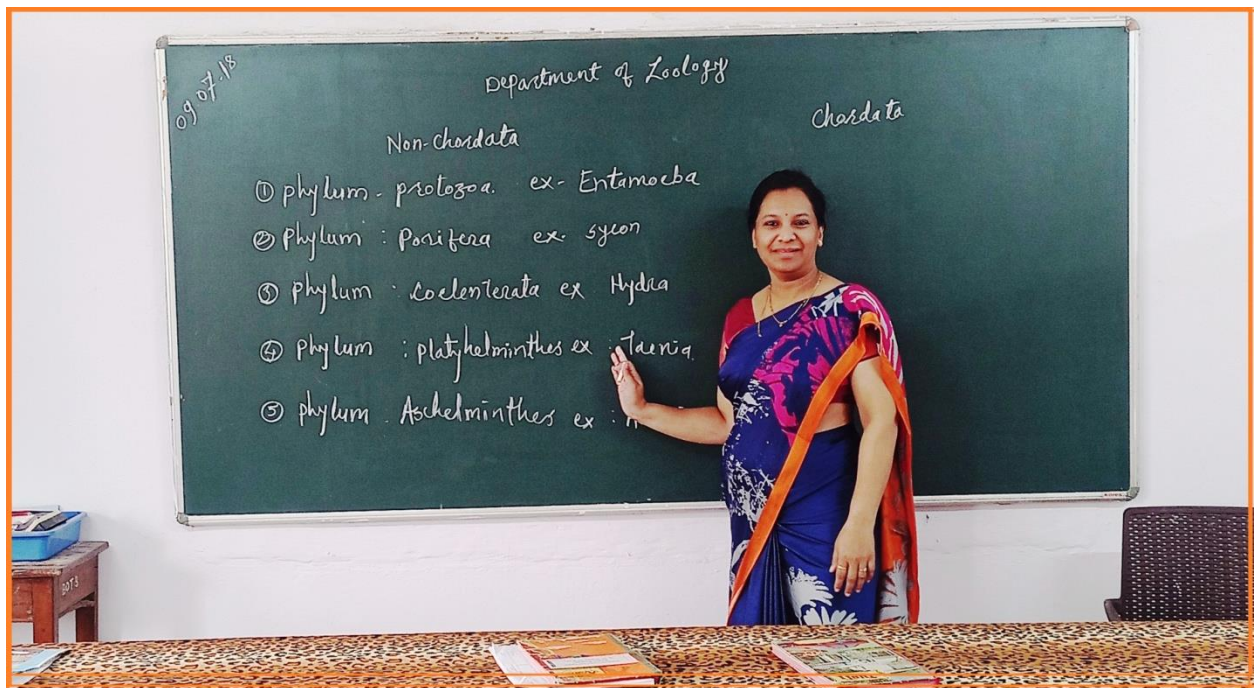 09.07.18
Department of Zoology
Non-Chordata
Chordata
① phylum - protozoa. ex- Entamoeba
② Phylum : Porifera ex- sycon
③ Phylum : Coelenterata ex Hydra
④ Phylum : platyhelminthes ex : Taenia.
⑤ phylum . Aschelminthes ex :
BOT-3